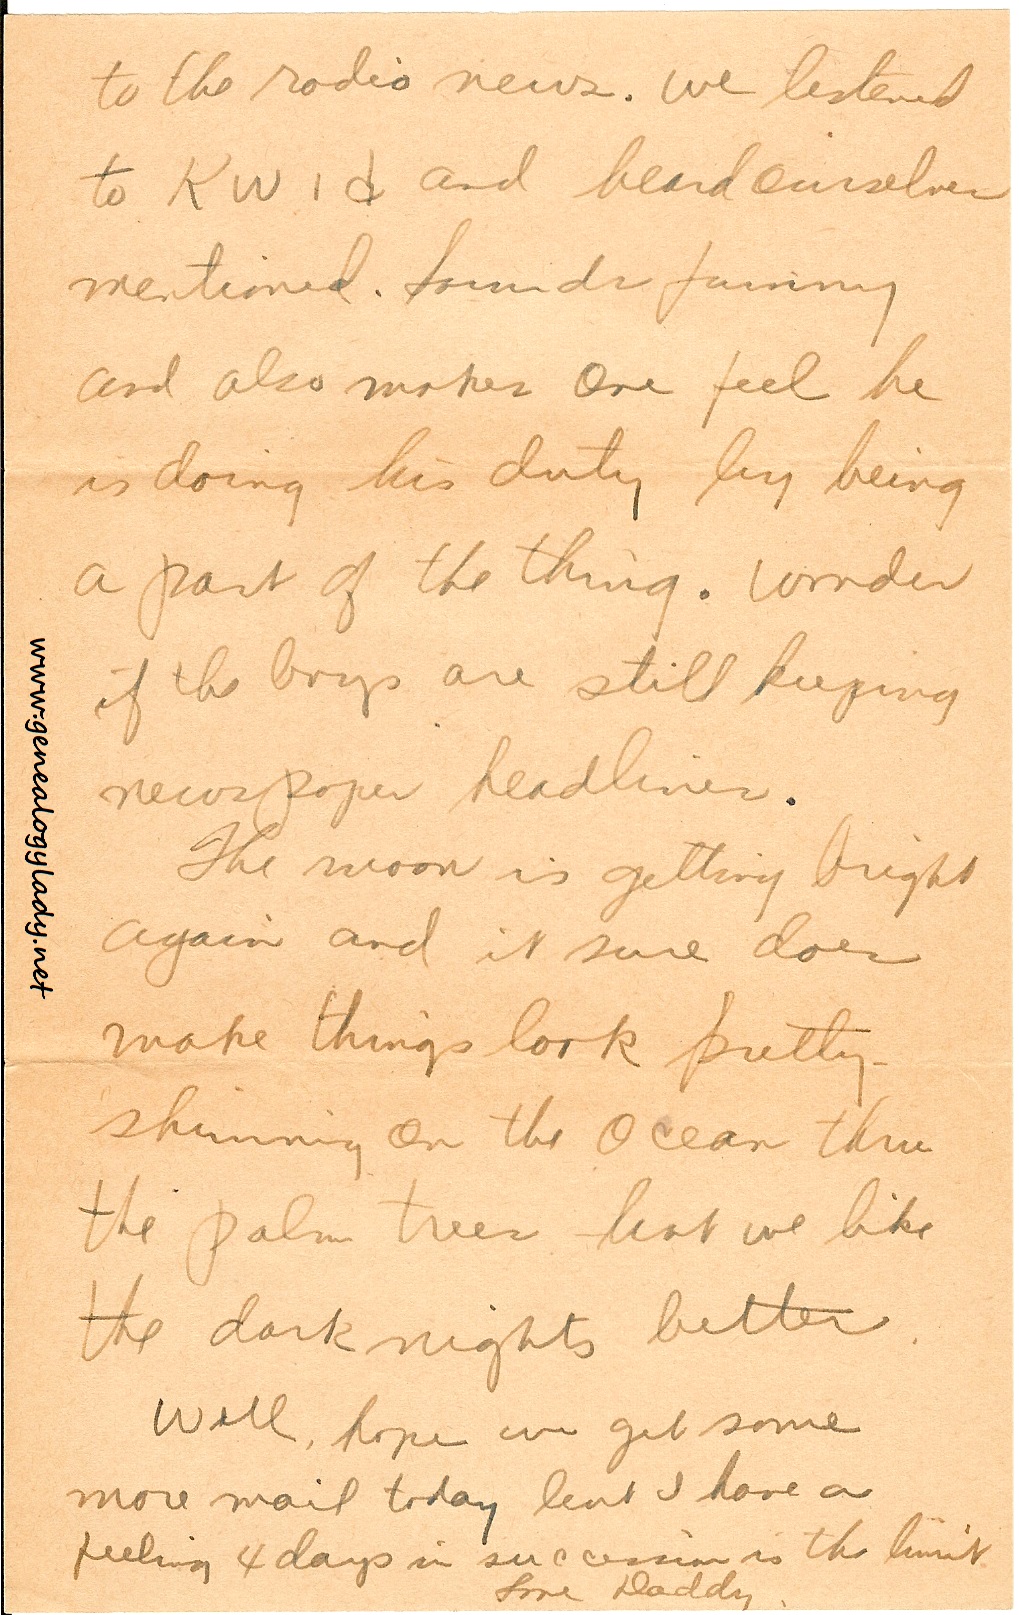 to the radio news. We listened
to KWID and heard ourselves
mentioned. Sounds funny
and also makes one feel he
is doing his duty by being
a part of the thing. Wonder
if the boys are still keeping
newspaper headlines.
The moon is getting bright
again and it sure does
make things look pretty -
shinning on the ocean thru
the palm trees but we like
the dark nights better.
Well, hope we get some
more mail today but I have a
feeling 4 days in succession is the limit
Love Daddy.
www.genealogylady.net